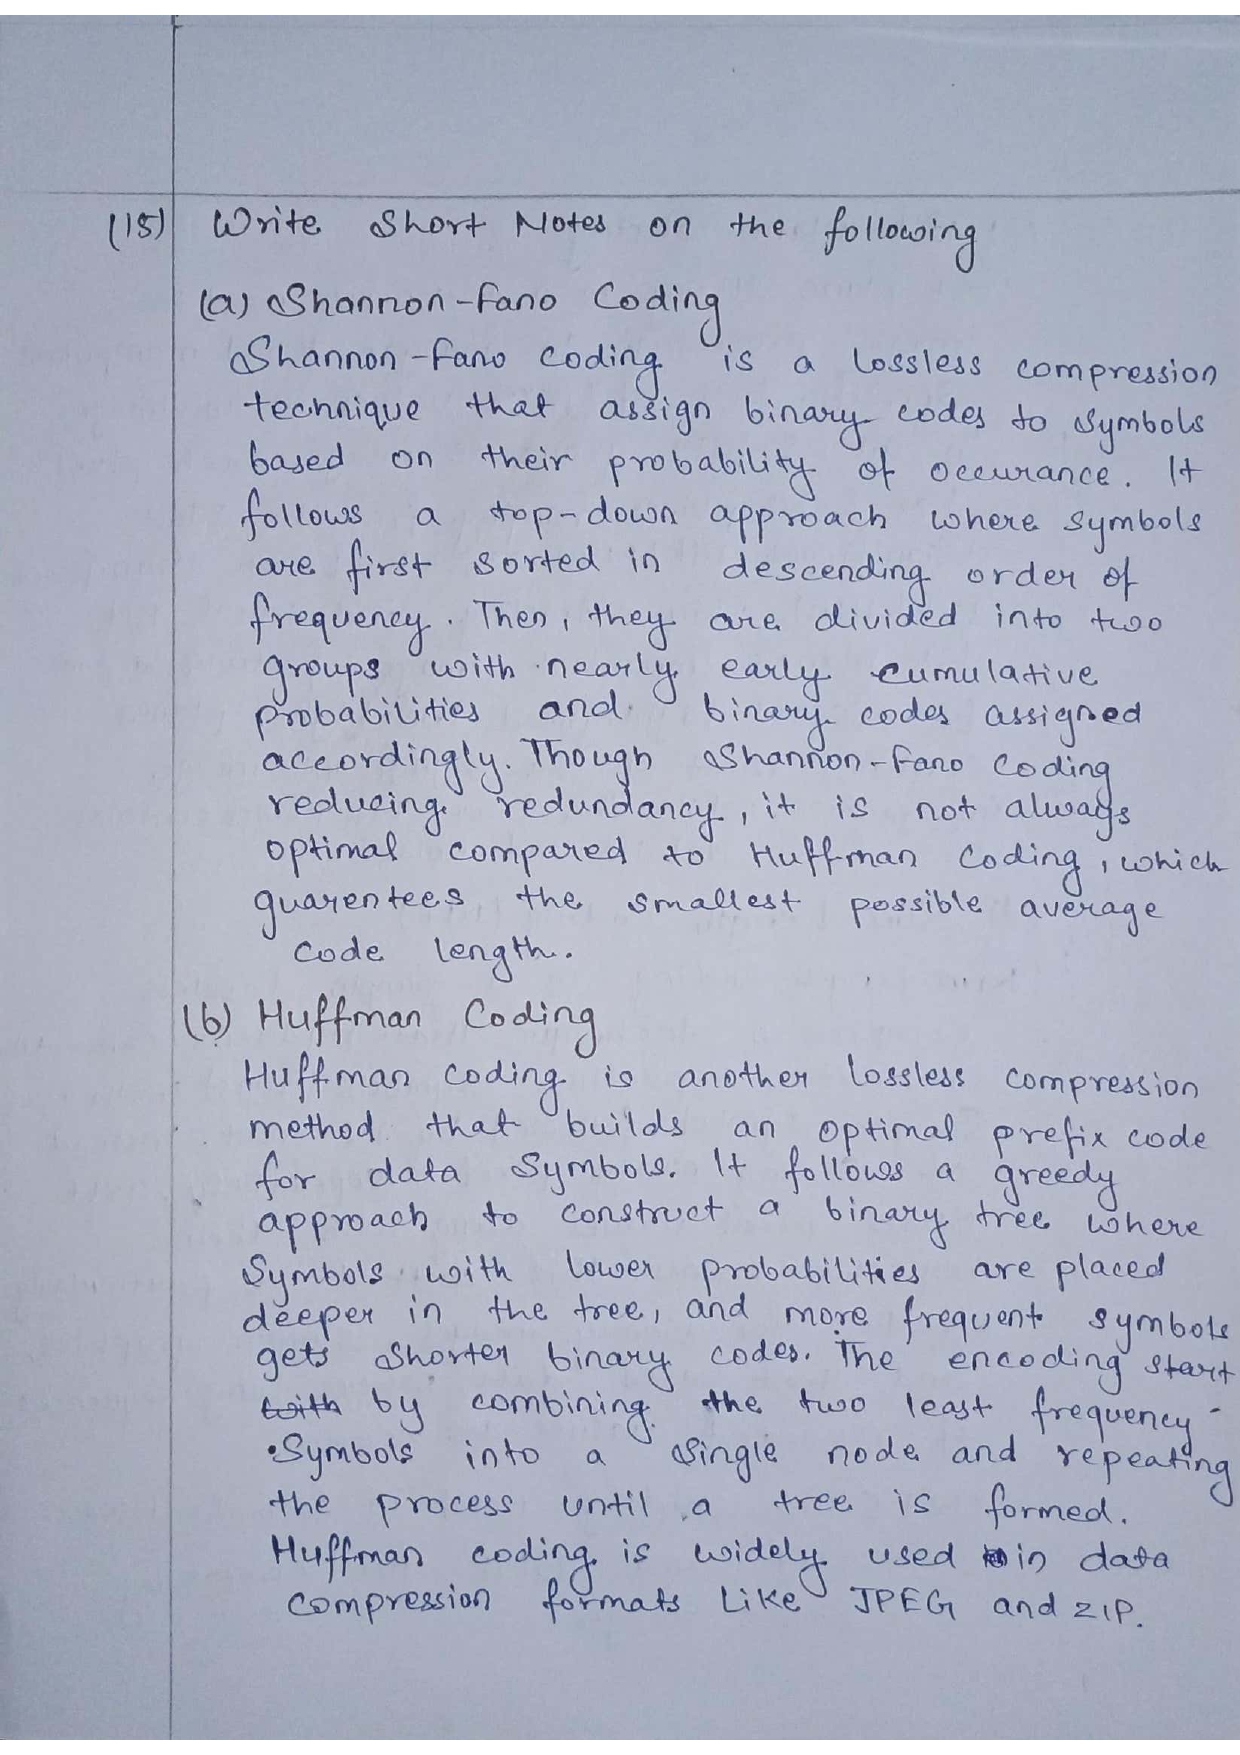 (15) Write Short Notes on the following
(a) Shannon-Fano Coding
Shannon-Fano coding is a lossless compression
technique that assign binary codes to symbols
based on their probability of occurance. It
follows a top-down approach where symbols
are first sorted in descending order of
frequency. Then, they are divided into two
groups with nearly early cumulative
probabilities and binary codes assigned
accordingly. Though Shannon-Fano Coding
reducing redundancy, it is not always
optimal compared to Huffman Coding, which
guarentees the smallest possible average
code length.
(b) Huffman Coding
Huffman coding is another lossless compression
method that builds an optimal prefix code
for data symbols. It follows a greedy
approach to construct a binary tree where
Symbols with lower probabilities are placed
deeper in the tree, and more frequent symbols
gets shorter binary codes. The encoding start
with by combining the two least frequency-
Symbols into a single node and repeating
the process until a tree is formed.
Huffman coding is widely used in data
compression formats like JPEG and ZIP.